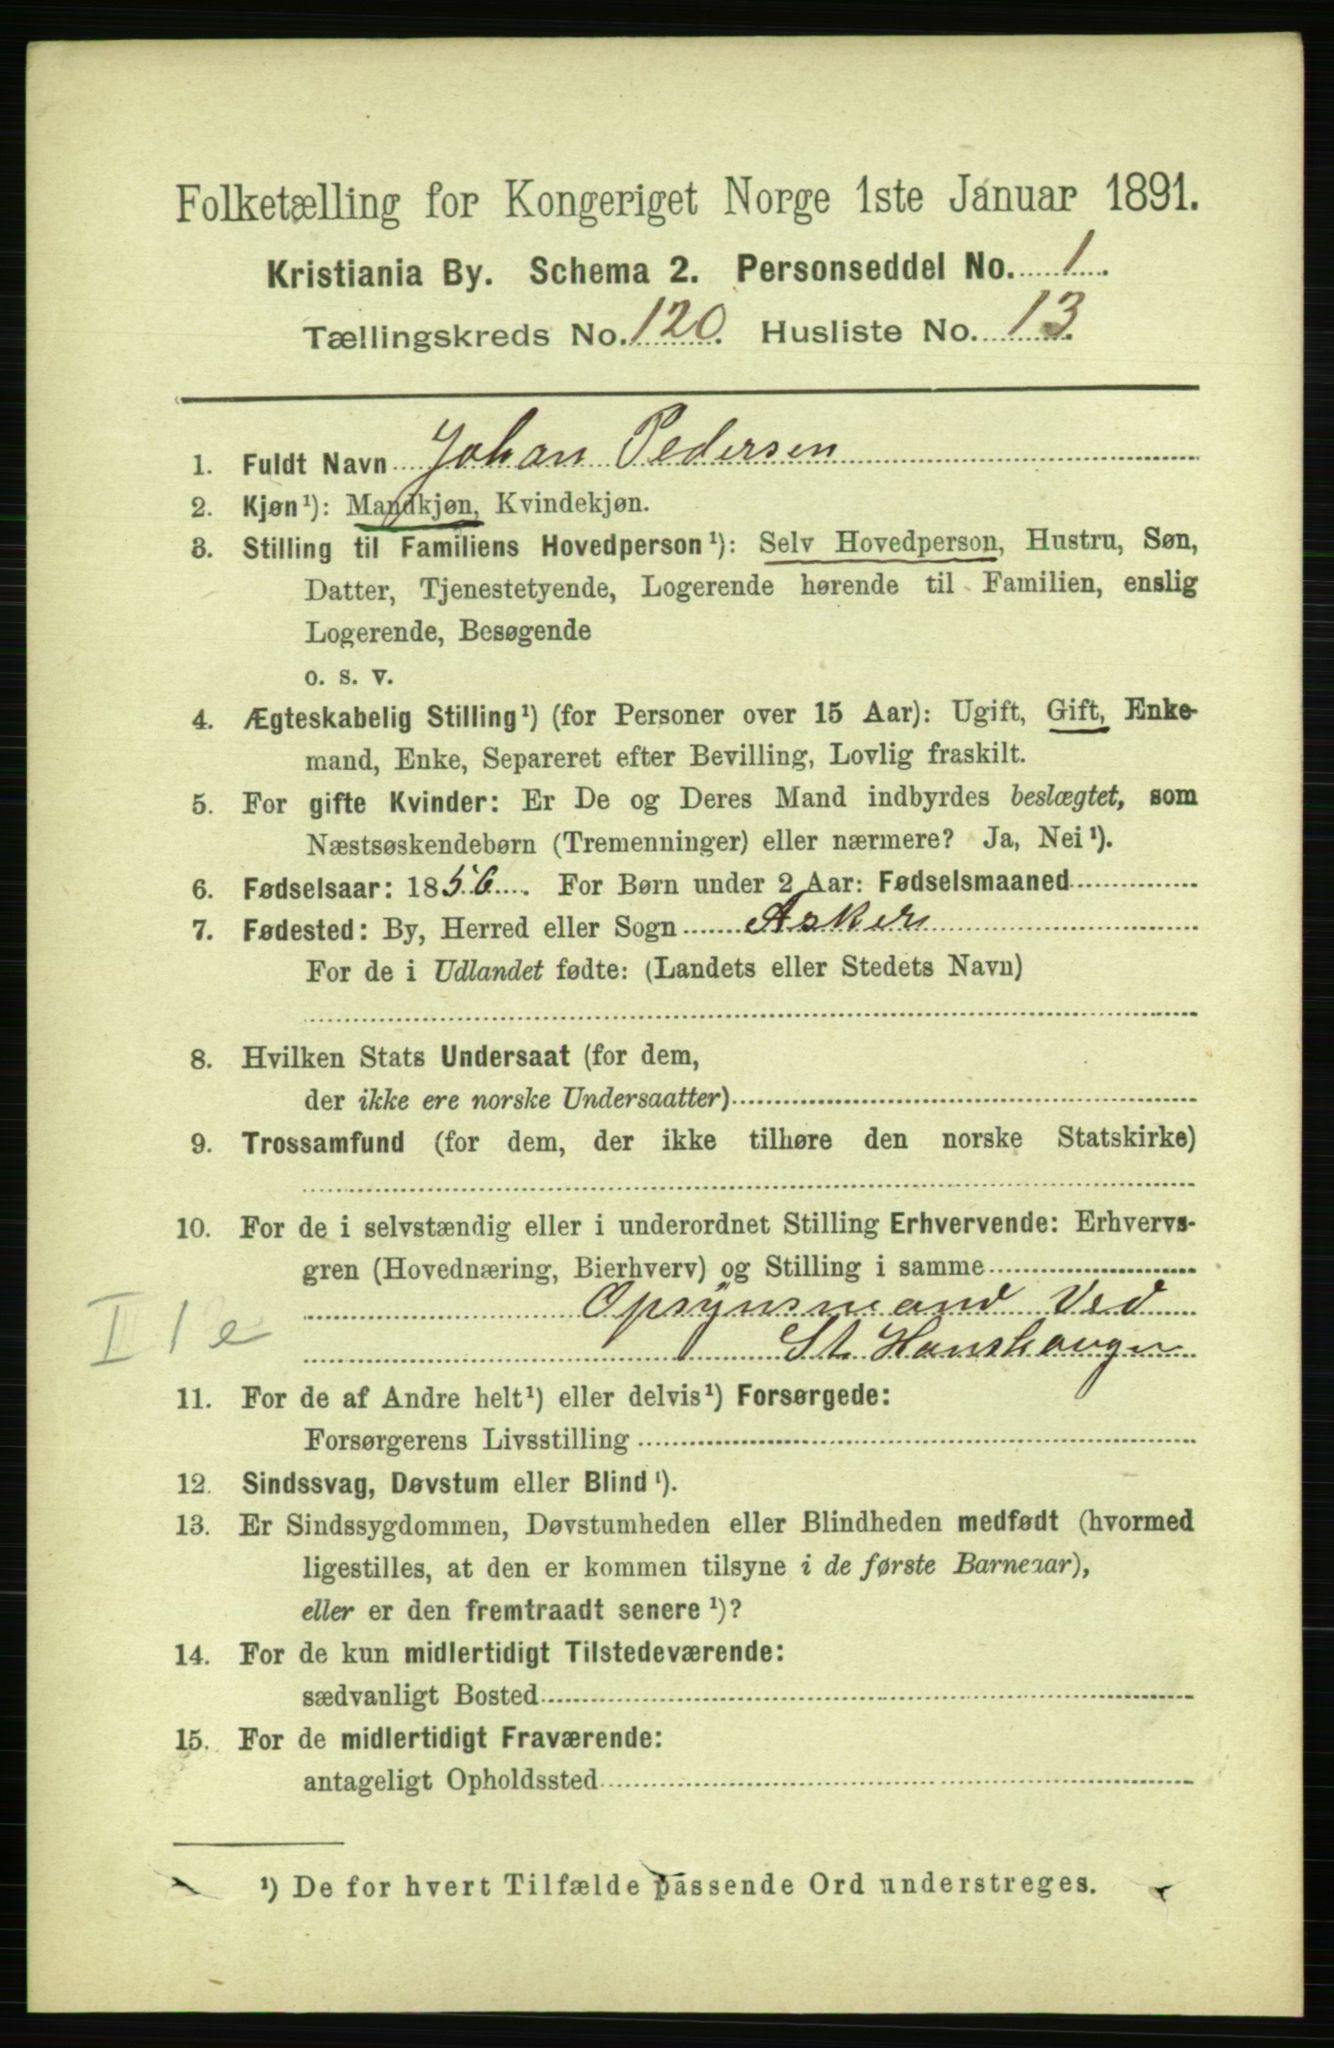 Folketælling for Kongeriget Norge 1ste Januar 1891.
Kristiania By. Schema 2. Personseddel No. 1
Tællingskreds No. 120 Husliste No. 13
1. Fuldt Navn Johan Pedersen
2. Kjøn¹): Mandkjøn, Kvindekjøn.
3. Stilling til Familiens Hovedperson¹): Selv Hovedperson, Hustru, Søn,
Datter, Tjenestetyende, Logerende hørende til Familien, enslig
Logerende, Besøgende
o. s. v.
4. Ægteskabelig Stilling¹) (for Personer over 15 Aar): Ugift, Gift, Enke-
mand, Enke, Separeret efter Bevilling, Lovlig fraskilt.
5. For gifte Kvinder: Er De og Deres Mand indbyrdes beslægtet, som
Næstsøskendebørn (Tremenninger) eller nærmere? Ja, Nei¹).
6. Fødselsaar: 1856. For Børn under 2 Aar: Fødselsmaaned
7. Fødested: By, Herred eller Sogn Asker
For de i Udlandet fødte: (Landets eller Stedets Navn)
8. Hvilken Stats Undersaat (for dem,
der ikke ere norske Undersaatter)
9. Trossamfund (for dem, der ikke tilhøre den norske Statskirke)
10. For de i selvstændig eller i underordnet Stilling Erhvervende: Erhvervs-
gren (Hovednæring, Bierhverv) og Stilling i samme
Opsynsmand Ved
I 1 e St. Hanshaugen
11. For de af Andre helt¹) eller delvis¹) Forsørgede:
Forsørgerens Livsstilling
12. Sindssvag, Døvstum eller Blind¹).
13. Er Sindssygdommen, Døvstumheden eller Blindheden medfødt (hvormed
ligestilles, at den er kommen tilsyne i de første Barneaar),
eller er den fremtraadt senere¹)?
14. For de kun midlertidigt Tilstedeværende:
sædvanligt Bosted
15. For de midlertidigt Fraværende:
antageligt Opholdssted
¹) De for hvert Tilfælde passende Ord understreges.